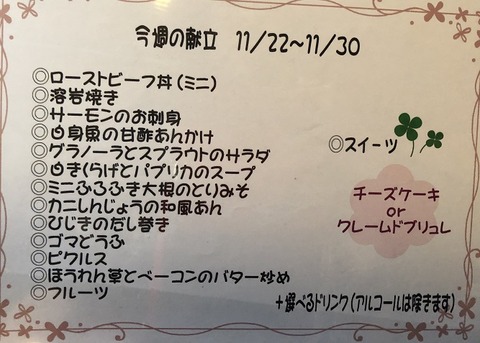 今週の献立 11/22~11/30
◎ローストビーフ丼(ミニ)
◎溶岩焼き
◎サーモンのお刺身
◎白身魚の甘酢あんかけ
◎グラノーラとスプラウトのサラダ
◎白きくらげとパプリカのスープ
◎ミニふろふき大根のとりみそ
◎カニしんじょうの和風あん
◎ひじきのだし巻き
◎ゴマどうふ
◎ピクルス
◎ほうれん草とベーコンのバター炒め
◎フルーツ
◎スイーツ
チーズケーキ
or
クレームドブリュレ
+選べるドリンク(アルコールは除きます)